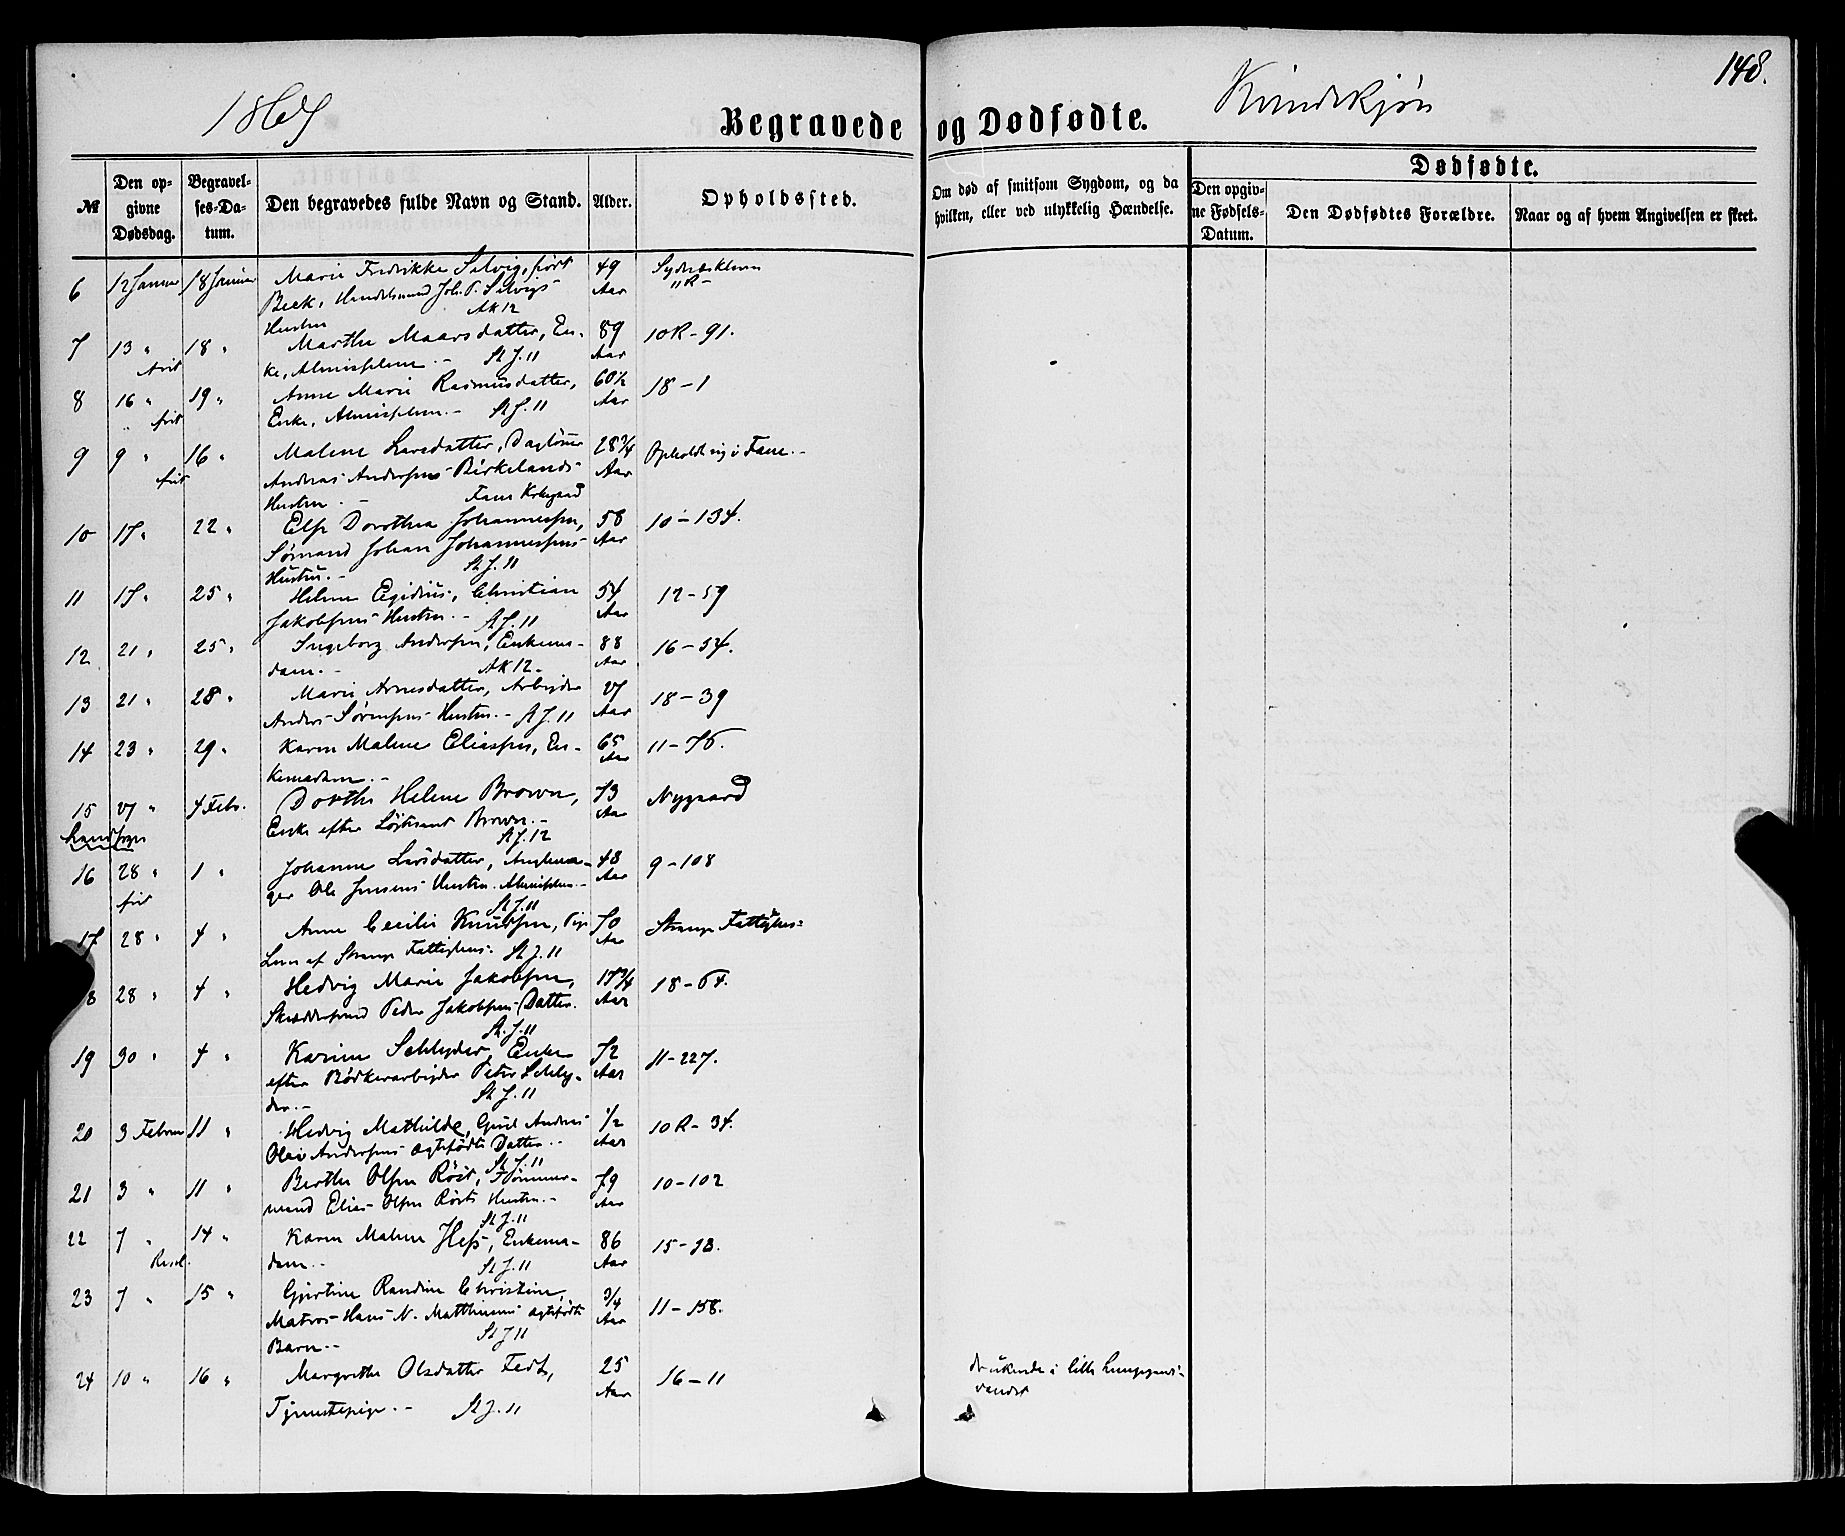 148.
Kvindekjøn
Begravede og Dødfødte.
Dødfødte.
№
Den opgivne Dødsdag.
Begravelses-Datum.
Den begravedes fulde Navn og Stand.
Alder.
Opholdssted.
Om død af smitsom Sygdom, og da hvilken, eller ved ulykkelig Hændelse.
Den opgivne Fødsels-Datum.
Den Dødfødtes Forældre.
Naar og af hvem Angivelsen er skeet.
6 12 Januar 18 Januar Marie Fredrikke Selvig, født 49 Aar
Beck, Handelsmand Joh. P. Selvigs
Hustru AK 12
7 13 " 18 " Marthe Maarsdatter, En- 89 Aar 10R-91.
frit ke, Almisselem.- St J. 11
8 16 " 19 " Anne Marie Rasmusdatter, 60½ Aar 18-1
frit Enke, Almisselem.- St J. 11
9 9 " 16 " Malene Larsdatter, Dagløner 28¾ Aar Opholdt sig i Fane.-
frit Andreas Andersens Birkelands
Hustru.- Fane Kirkegaard
10 17 " 22 " Else Dorothea Johannessen, 58 Aar 10-134.
Sømand Johan Johannessens
Hustru.- St J. 11
11 17 " 25 " Helene Egidius, Christian 54 Aar 12-59
Jakobsens Hustru.- St J. 11
12 21 " 25 " Ingeborg Andersen, Enkema- 88 Aar 16-54.
dam.- AK 12.
13 21 " 28 " Marie Arnesdatter, Arbeider 27 Aar 18-39
Anders Sørensens Hustru.- St J. 11
14 23 " 29 " Karen Malene Eliassen, En- 65 Aar 11-76.
kemadam.-
15 27 " 4 Febr. Dorthe Helene Brown, 73 Aar Nygaard
Landsogn Enke efter Løitnant Brown.-
St J. 12
16 28 " 1 " Johanne Larsdatter, 48 Aar 9-108
frit ger Ole Jensens Hustru. Almisselem.-
St J. 11
17 28 " 4 " Anne Cecilie Knudsen, Pige 70 Aar Stranges Fattighus
Lem af Stranges Fattighus. St J. 11
28 " 4 " Hedvig Marie Jakobsen, 17¾ Aar 18-64.
Skræddersvend Peder Jakobsens Datter.
St. J. 11
19 30 " 4 " Karine Schlyder, Enke 72 Aar 11-227.
efter Bødkerarbeider Peter Schly-
der.- St J. 11
20 3 Februar 11 " Hedvig Mathilde, Andreas ½ Aar 10R-34.
Olai Andersens ægtefødte Datter.-
St J. 11
21 3 " 11 " Berthe Olsen Röst, Tømmer- 79 Aar 10-102
mand Elias Olsen Rösts Hustru.-
St J. 11
22 7 " 14 " Karen Malene Hess, Enkema- 86 Aar
dam.- St J. 11
23 7 " 15 " Gjertine Randine Christine, ¾ Aar 11-158.
Matros Hans N. Matthiesens ægtefødte
Barn.- St J 11
24 10 " 16 " Margrethe Olsdatter Fedt, 25 Aar 16-11 druknede i lille Lungegaards-
Tjenestepige.- St J. 11 vandet